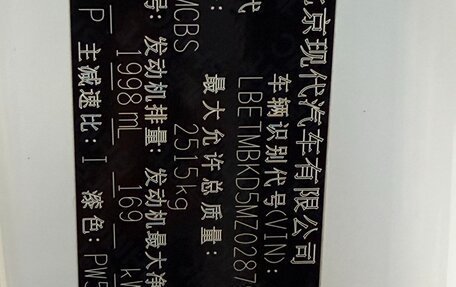 北京现代汽车有限公司
车辆识别代号(VIN):
LBETMBKD5MZ0287
代
最大允许总质量:
2515kg
MCBS
号: 发动机排量: 发动机最大净
1998ml 169 kW
P 主减速比: I 漆色: PW5